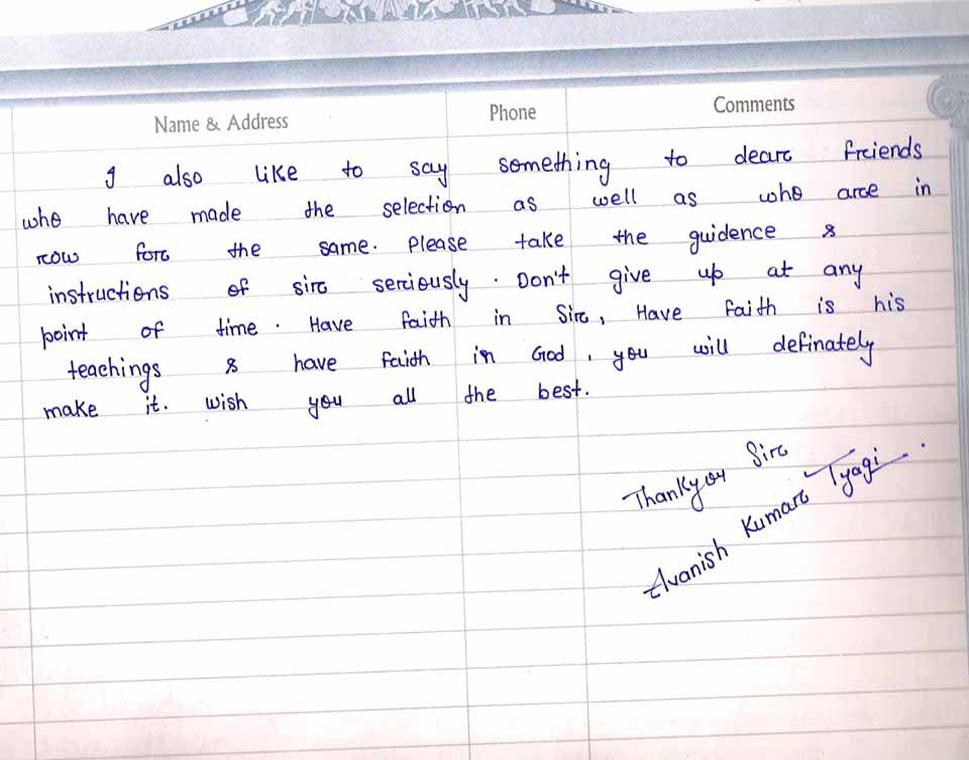 Name & Address Phone Comments
I also like to say something to dear friends
who have made the selection as well as who are in
row for the same. Please take the guidence &
instructions of sir seriously. Don't give up at any
point of time. Have faith in Sir, Have faith is his
teachings & have faith in God, you will definately
make it. wish you all the best.
Thankyou Sir
Avanish Kumar Tyagi